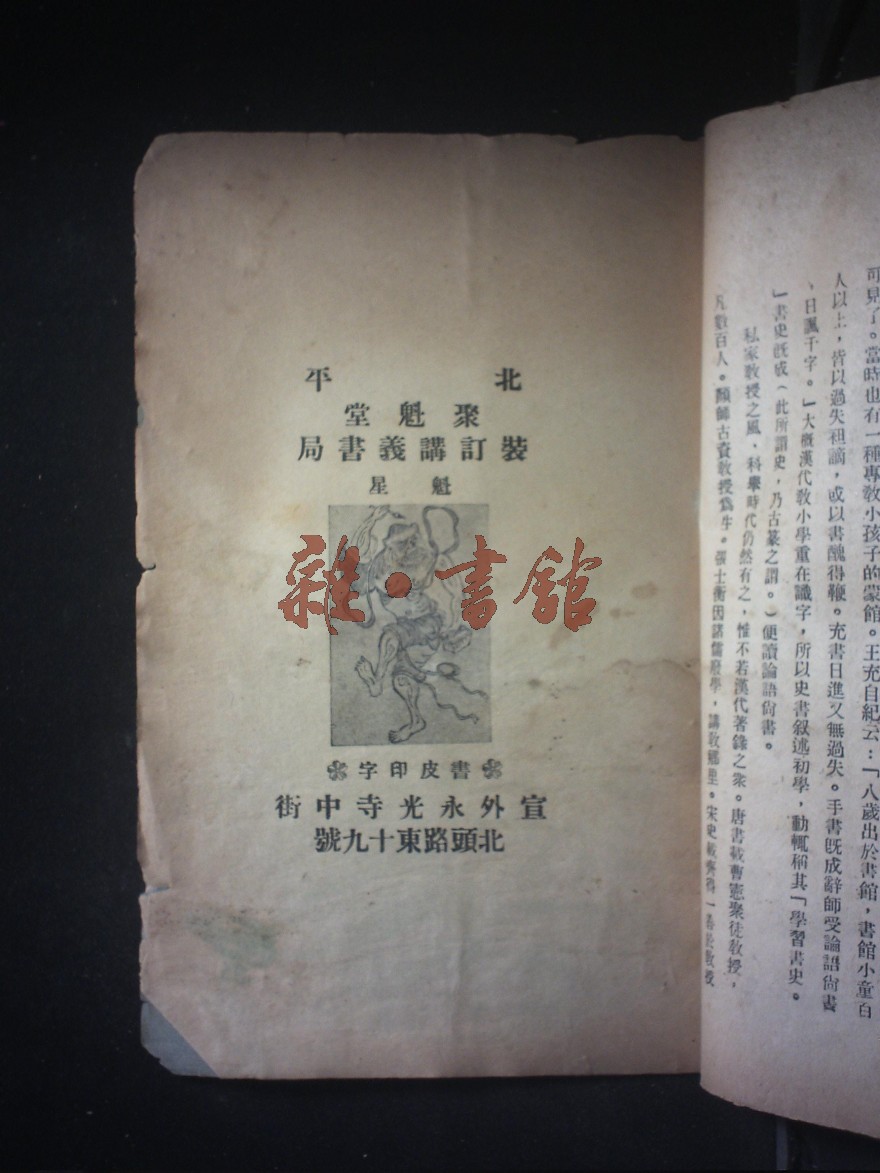 可見了。當時也有一種專教小孩子的蒙館。王充自紀云：「八歲出於書館，書館小童百
人以上，皆以過失袒謫，或以書醜得鞭。充書日進又無過失。手書旣成辭師受論語尙書
、日諷千字。」大概漢代敎小學重在識字，所以史書叙述初學，動輒稱其「學習書史。
」書史旣成（此所謂史，乃古篆之謂。）便讀論語尙書。
私家敎授之風，科舉時代仍然有之，惟不若漢代著錄之衆。唐書載曹憲聚徒敎授，
凡數百人。顏師古資敎授爲生。張士衡因諸儒廢學，講敎鄉里。宋史載
北平
聚魁堂
裝訂講義書局
魁星
雜·書館
書皮印字
宣外永光寺中街
北頭路東十九號